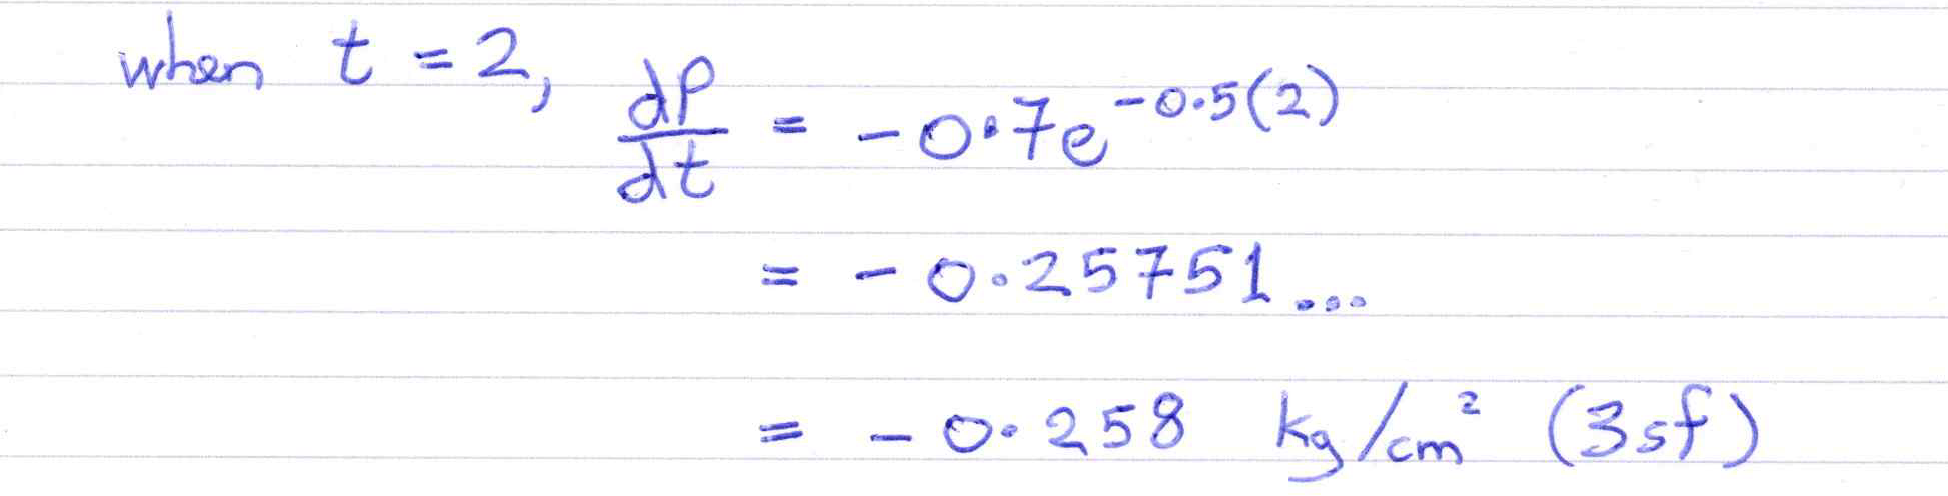 when t = 2, dP/dt = -0.7e^{-0.5(2)}
= -0.25751...
= -0.258 kg/cm² (3sf)